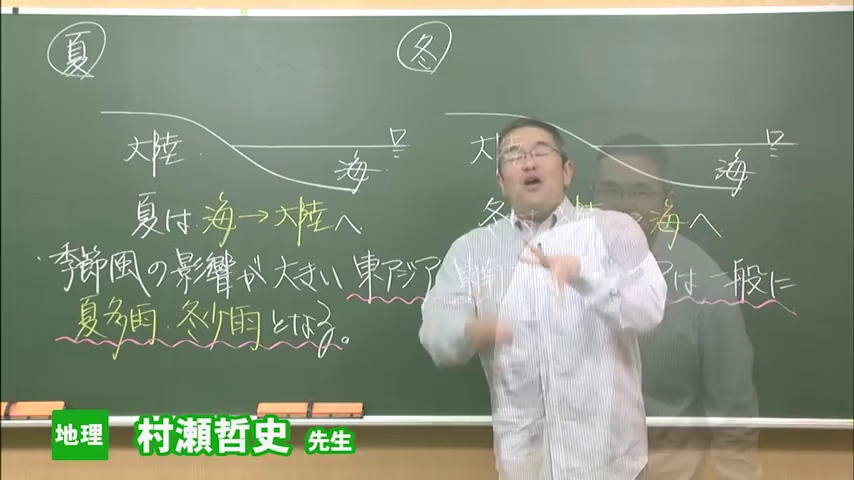 夏
冬
大陸
海
大
海
夏は 海→大陸へ
冬は 大陸 海へ
季節風の影響が大きい 東アジア 東南 アは一般に
夏多雨・冬少雨となる。
地理 村瀬哲史 先生